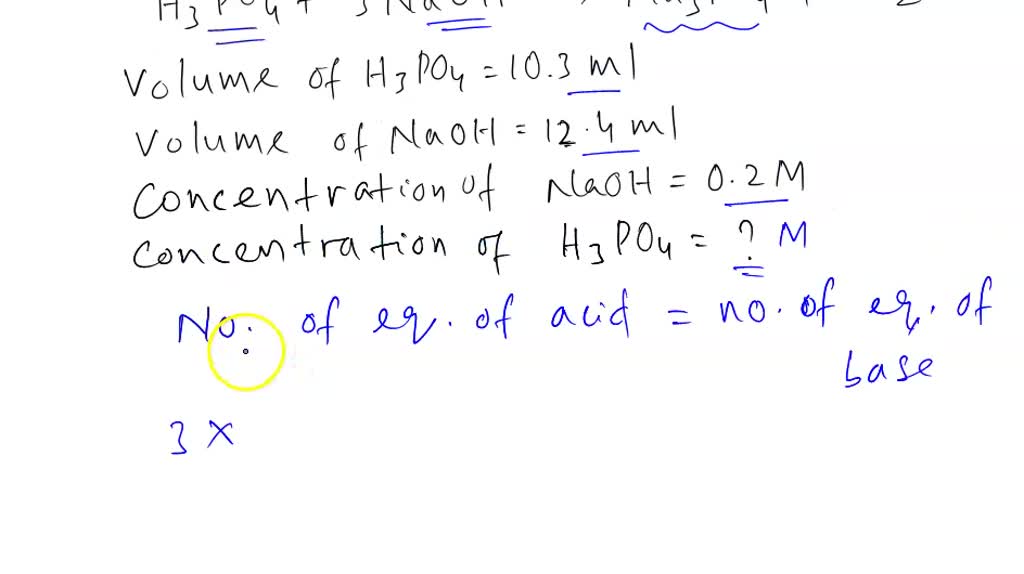 H3PO4 + 3NaOH
Volume of H3PO4 = 10.3 ml
Volume of NaOH = 12.4 ml
Concentration of NaOH = 0.2 M
Concentration of H3PO4 = ? M
No. of eq. of acid = no. of eq. of
base
3 x